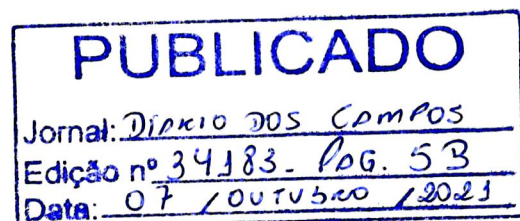 PUBLICADO
Jornal: DIÁRIO DOS CAMPOS
Edição nº 34183 - PAG. 5B
Data: 07 / OUTUBRO / 2021